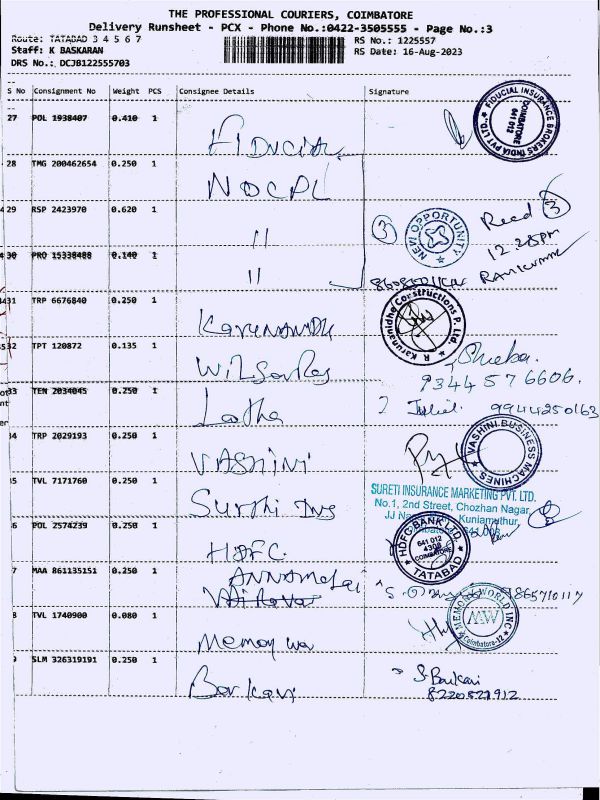 THE PROFESSIONAL COURIERS, COIMBATORE
Delivery Runsheet - PCX - Phone No.:0422-3505555 - Page No.:3
Route: TATABAD 3 4 5 6 7
RS No.: 1225557
Staff: K BASKARAN
RS Date: 16-Aug-2023
DRS No.: DCJB122555703
S No Consignment No Weight PCS Consignee Details Signature
27 POL 1938407 0.410 1 Fiducial
FIDUCIAL INSURANCE BROKERS INDIA PVT LTD., COIMBATORE 641 012
28 TMG 200462654 0.250 1 NDCPL
29 RSP 2423970 0.620 1 "
3 NEW OPPORTUNITY Recd 3
12.28pm
30 PRO 15338488 0.140 1 "
31 TRP 6676840 0.250 1
R. Karunanidhe Constructions P. Ltd.
32 TPT 120872 0.135 1
Sheeba.
9344576606.
33 TEN 2034045 0.250 1 Latha
9944250163
34 TRP 2029193 0.250 1 VASHINI
VASHINI BUSINESS MACHINES
5 TVL 7171760 0.250 1
SURETI INSURANCE MARKETING PVT. LTD.
No.1, 2nd Street, Chozhan Nagar,
JJ Kuniamuthur,
6 POL 2574239 0.250 1 HDFC
HDFC BANK LTD. 641 012 4308 COIMBATORE TATABAD
7 MAA 861135151 0.250 1 ANNAMALAI
9865710117
8 TVL 1740900 0.080 1 Memory wo
MEMORY WORLD INC MW Coimbatore-12
9 SLM 326319191 0.250 1
8220521912